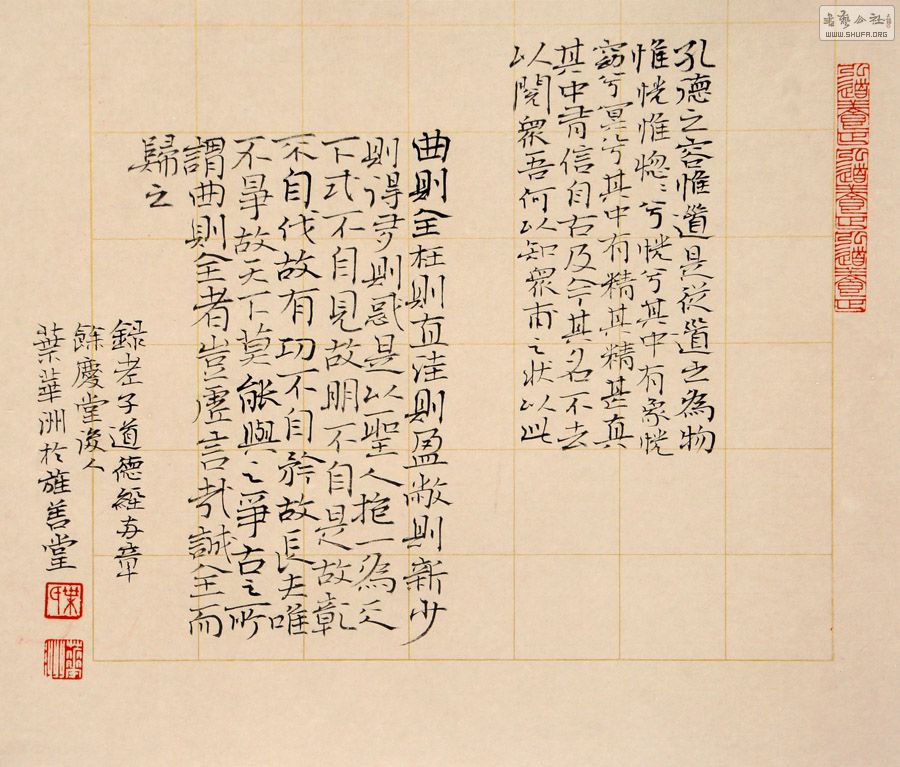 書藝公社
WWW.SHUFA.ORG
弘道養正弘道養正弘道養正
孔德之容惟道是從道之為物
惟恍惟惚〻兮恍兮其中有象恍
窈兮冥兮其中有精其精甚真
其中有信自古及今其名不去
以閱衆吾何以知衆甫之狀以此
曲則全枉則直洼則盈敝則新少
則得多則惑是以聖人抱一為天
下式不自見故明不自是故彰
不自伐故有功不自矜故長夫唯
不爭故天下莫能與之爭古之所
謂曲則全者豈虛言哉誠全而
歸之
錄老子道德經章
餘慶堂後人
葉華洲於善堂
葉氏
華洲